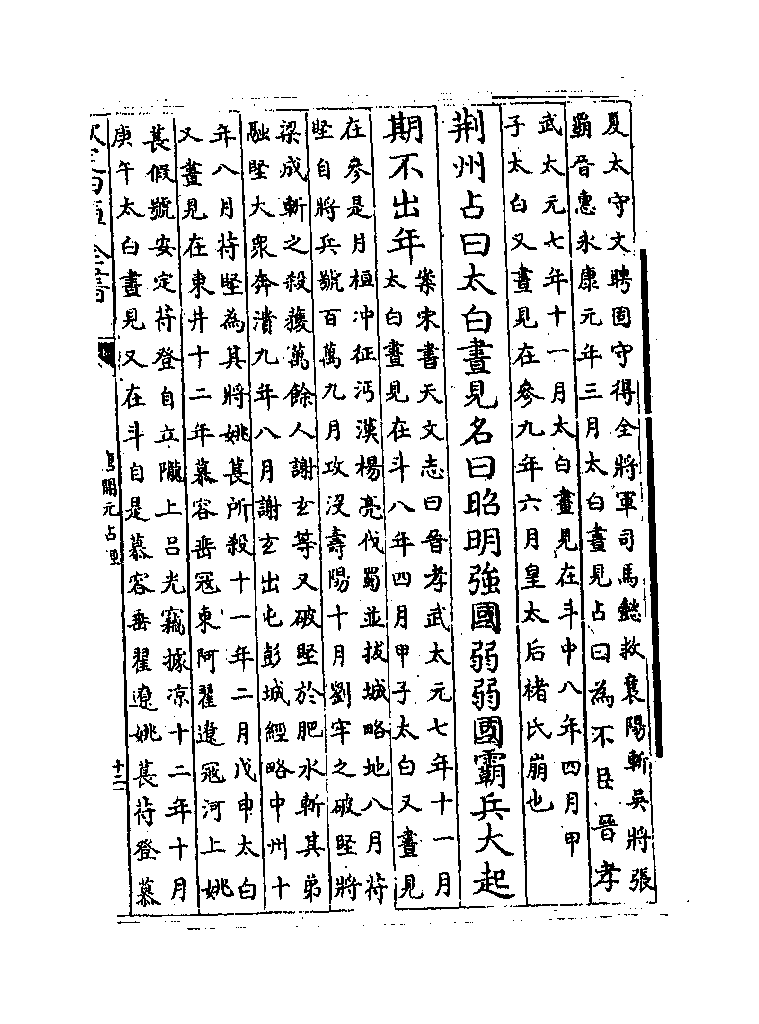 夏太守文聘固守得全將軍司馬懿救襄陽斬吳將張
霸晉惠永康元年三月太白晝見占曰為不臣晉孝
武太元七年十一月太白晝見在斗中八年四月甲
子太白又晝見在參九年六月皇太后褚氏崩也
荆州占曰太白晝見名曰昭明強國弱弱國霸兵大起
期不出年
案宋書天文志曰晉孝武太元七年十一月
太白晝見在斗八年四月甲子太白又晝見
在參是月桓冲征沔漢楊亮伐蜀並拔城略地八月苻
堅自將兵號百萬九月攻没壽陽十月劉牢之破堅將
梁成斬之殺獲萬餘人謝玄等又破堅於肥水斬其弟
融堅大衆奔潰九年八月謝玄出屯彭城經略中州十
年八月苻堅為其將姚萇所殺十一年二月戊申太白
又晝見在東井十二年慕容垂冦東阿翟遼冦河上姚
萇假號安定苻登自立隴上吕光竊據凉十二年十月
庚午太白晝見又在斗自是慕容垂翟遼姚萇苻登慕
唐開元占經
十二